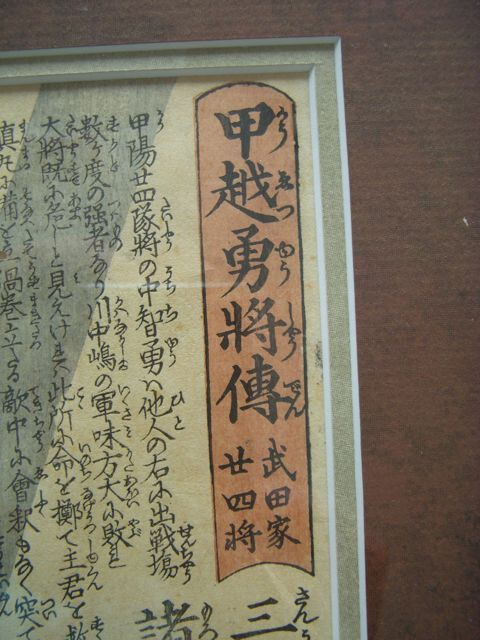 甲越勇將傳
武田家
廿四将
三
諸
甲陽廿四隊將の中智勇ハ他人の右に出戦場
数ヶ度の強者なり川中嶋の軍味方大に敗を
大將既に危しと見えけれバ此所に命を擲て主君を救
真丸に備を
渦巻立たる敵中に會釈もなく突て